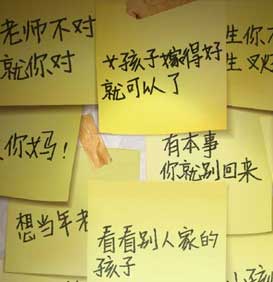 老师不对
就你对
女孩子嫁得好
就可以了
生你不
生叉
你妈！
有本事
你就别回来
想当年老
看看别人家的
孩子
小孩